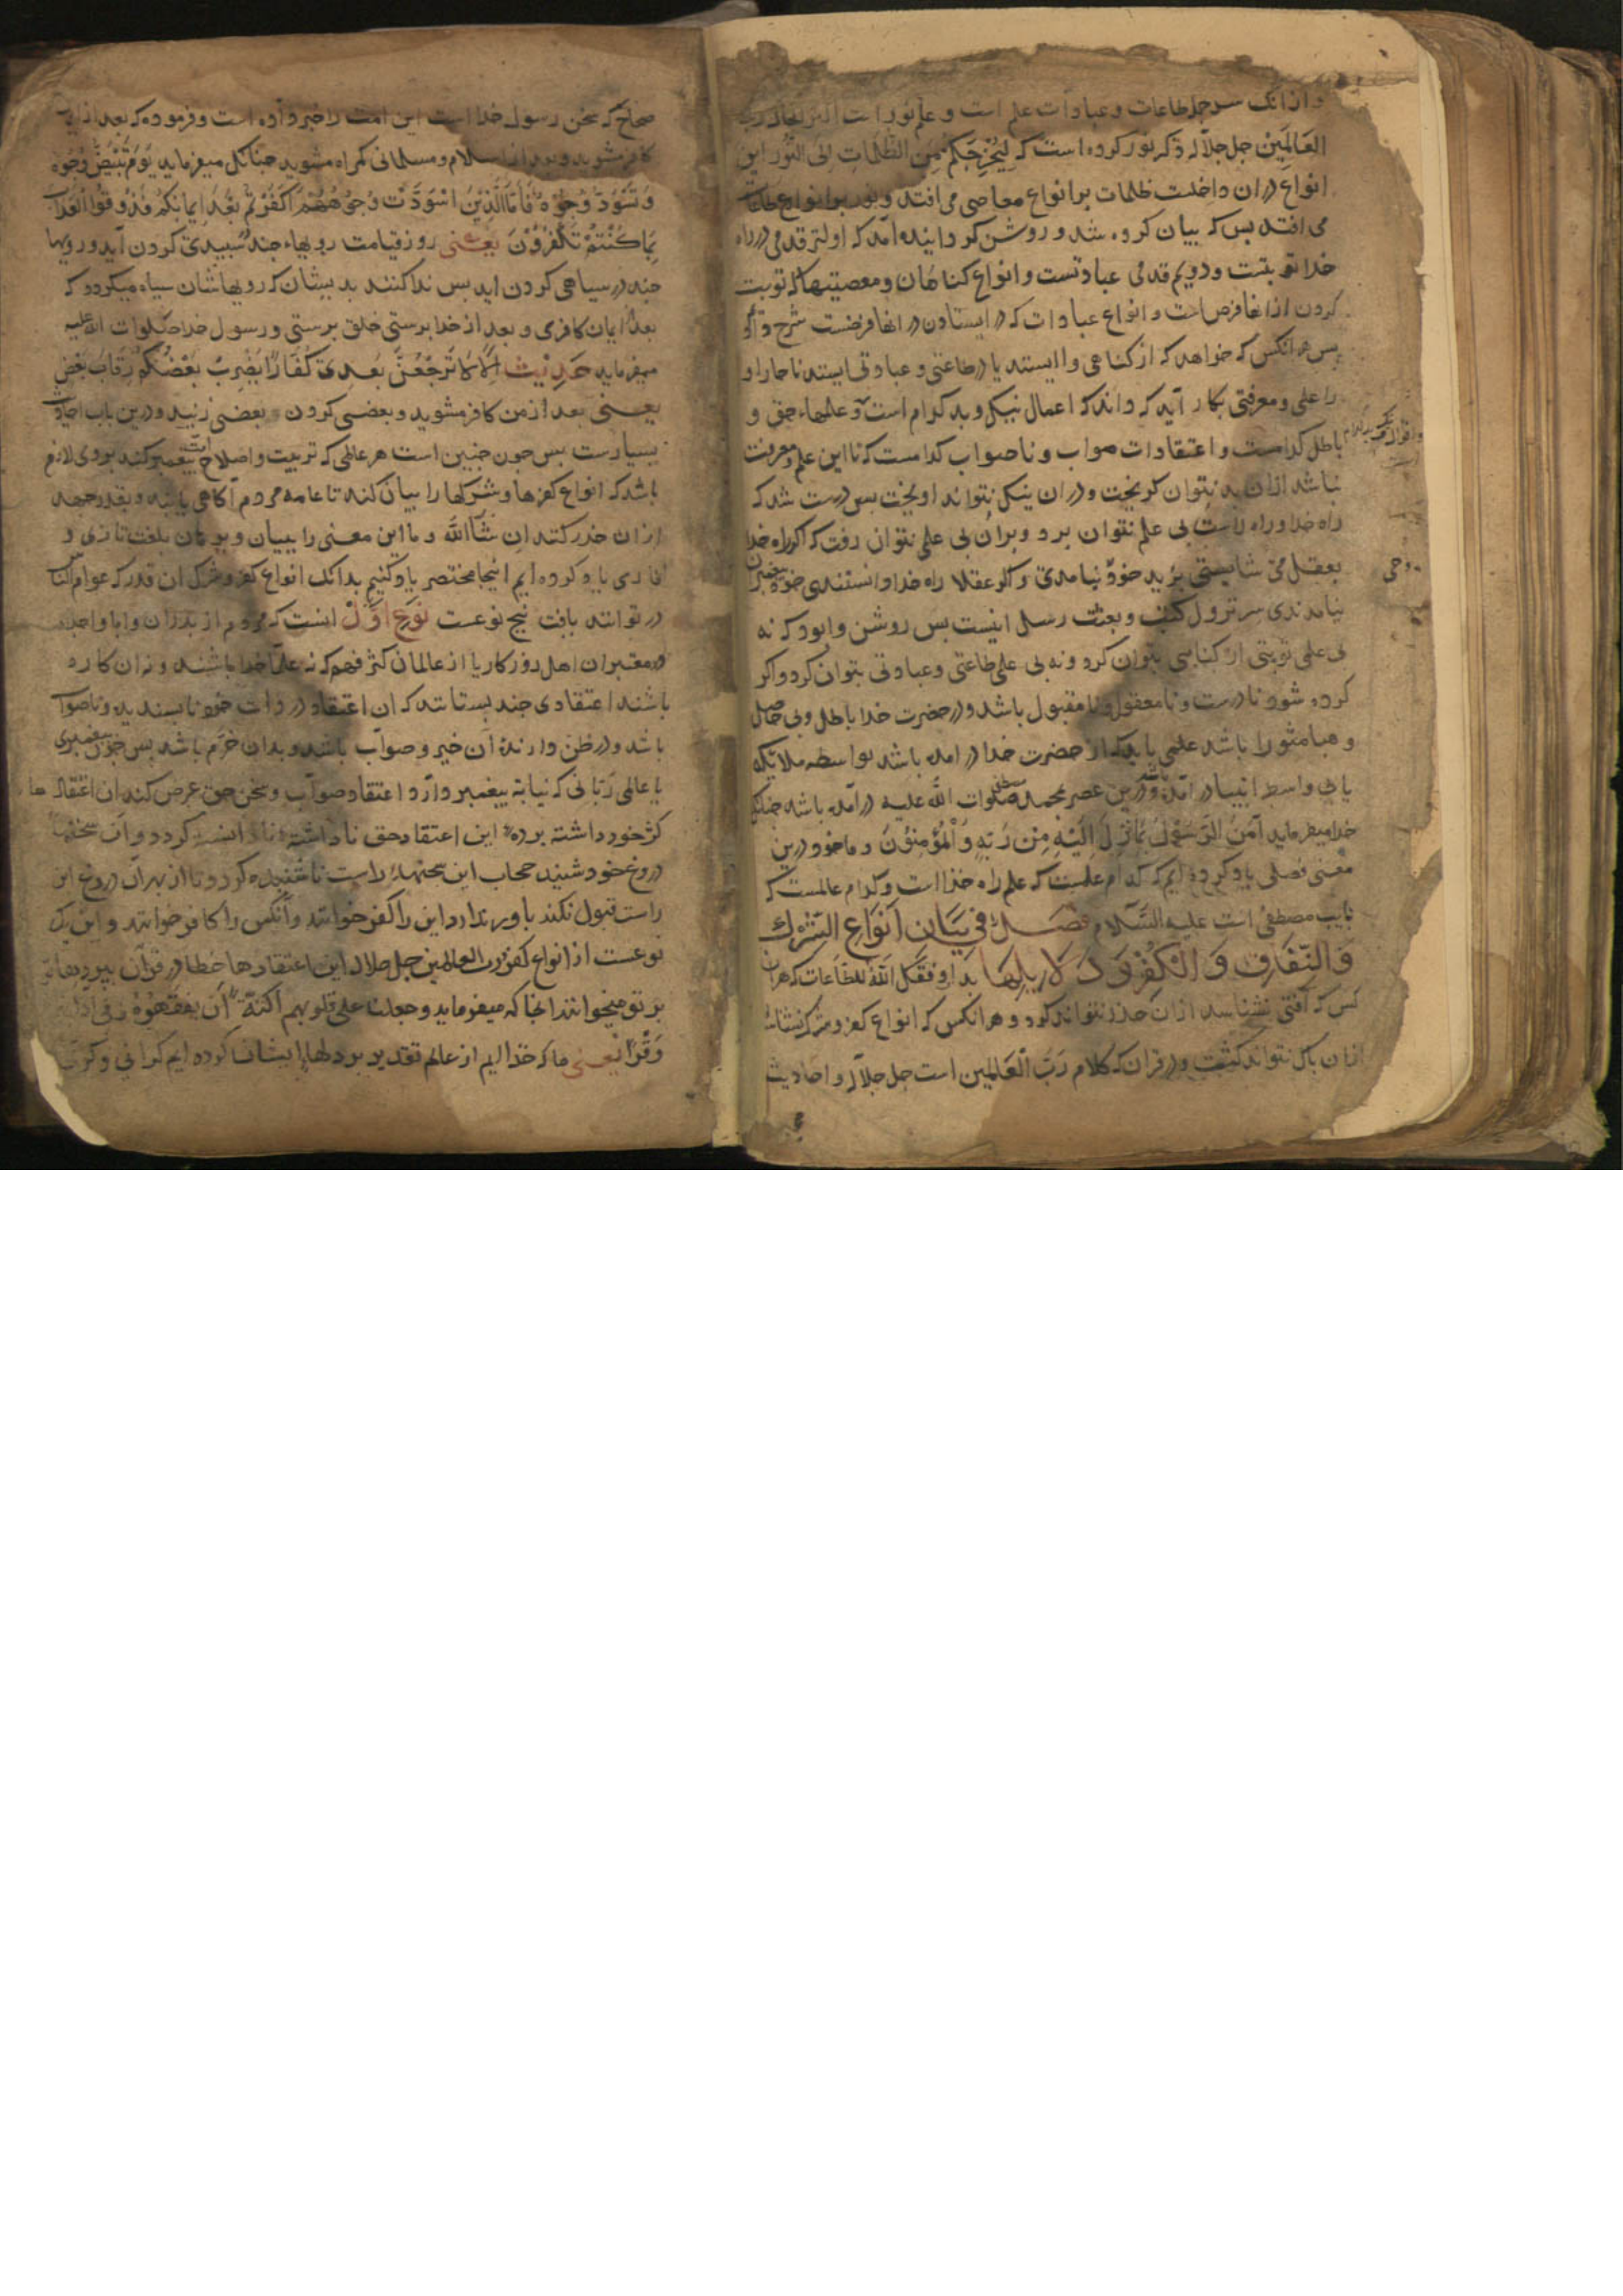 و از انک سر جمله طاعات و عبادات علم است و علم نور است
العَالَمِیْن جل جلاله ذکر نور کرده است که لِیُخْرِجَکُمْ مِنَ الظُّلُمَاتِ اِلَی النُّوْر این
انواع در ان داخلست ظلمات بر انواع معاصی می افتد و نور بر انواع طاعات
می افتد بس که بیان کرده شد و روشن کردانیده آمد که اولتر قدمی در راه
خدا توبتست و دویم قدمی عبادتست و انواع کناهان و معصیتها که توبت
کردن از انها فرض است و انواع عبادات که در ایستادن در انها فرضست شرح
بس هر انکس که خواهد که از کناهی وا ایستد یا در طاعتی و عبادتی ایستد ناچار او
را علمی و معرفتی بکار آید که داند که اعمال نیک و بد کدام است و علمهاء حق و
باطل کدامست و اعتقادات صواب و ناصواب کدامست که تا این علم و معرفت
نباشد ازان بد نتوان کریخت و در ان نیکی نتواند اویخت بس درست شد که
راه خدا و راه راست بی علم نتوان برد و بران بی علم نتوان رفت که اکر راه خدا
بعقل می شایستی برید خود نیامدی و اکر عقلا راه خدا دانستندی خود
نیامدندی سر نزول کتب و بعثت رسل اینست بس روشن وابود که نه
بی علمی توبتی از کناهی بتوان کرد و نه بی علم طاعتی و عبادتی بتوان کرد و اکر
کرده شود نادرست و نامعقول و نامقبول باشد و در حضرت خدا باطل و بی حاصل
و هبا منثورا باشد علمی باید که از حضرت خدا در امده باشد بواسطه ملایکه
یا بی واسطه انبیا در آمده و درین عصر بمحمد مصطفی صلوات الله علیه در آمده باشد چنانک
خدا میفرماید آمَنَ الرَّسُوْلُ بِمَا اُنْزِلَ اِلَیْهِ مِنْ رَبِّهِ وَالْمُؤْمِنُوْنَ و ما خود درین
معنی فصلی یاد کرده ایم که کدام علمست که علم راه خدا است و کدام عالمست که
نایب مصطفی است علیه السَّلام فصل فِی بَیَانِ اَنْوَاعِ الشِّرْك
وَالنِّفَاقِ وَالْکُفْرِ بدان وفقک الله للطاعات که هر ان
کس که آفتی نشناسد ازان حذر نتواند کرد و هر انکس که انواع کفر و شرک نشناسد
ازان باک نتواند کشت و در قران که کلام رَبّ الْعَالَمِین است جل جلاله و احادیث
وحی
صحاح که سخن رسول خدا است این امت را خبر داده است و فرموده که بعد از
کافر مشوید و بعد از اسلام و مسلمانی کمراه مشوید چنانک میفرماید یَوْمَ تَبْیَضُّ وُجُوْه
وَ تَسْوَدُّ وُجُوْهٌ فَاَمَّا الَّذِیْنَ اسْوَدَّتْ وُجُوْهُهُمْ اَکَفَرْتُمْ بَعْدَ اِیمَانِکُمْ فَذُوْقُوا الْعَذَابَ
بِمَا کُنْتُمْ تَکْفُرُوْنَ یعنی روز قیامت رویهاء چند سبیدی کردن آید و رویها
چند در سیاهی کردن اید بس ندا کنند بدیشان که رویهاشان سیاه میکردد که
بعد ایمان کافری و بعد از خدا برستی خلق برستی و رسول خدا صلوات الله علیه
میفرماید حدیث اَلَا لَا تَرْجِعُنَّ بَعدی کُفَّارًا یَضْرِبُ بَعْضُکُمْ رِقَابَ بَعْضٍ
یعنی بعد از من کافر مشوید و بعضی کردن بعضی زنید و درین باب احادیث
بسیارست بس چون چنین است هر عالمی که تربیت و اصلاح امت بیغمبر کند بر وی لازم
باشد که انواع کفرها و شرکها را بیان کند تا عامه مردم آکاهی یابند و بقدر جهد
ازان حذر کنند ان شآالله و ما این معنی را ببیان و برهان بلغت تازی و
فارسی یاد کرده ایم اینجا مختصر یاد کنیم بدانک انواع کفر و شرک ان قدر که عوام الناس
در توانند یافت بنج نوعست نوع اوّل انست که مردم از بدران و ابا و اجداد
و معتبران اهل روزکار یا از عالمان کژ فهم که نه علماء خدا باشند
باشند اعتقادی چند بستانند که ان اعتقاد در ذات خود نابسندیده و ناصواب
باشد و در ظن دارنده آن خیر و صواب باشد و بدان خرّم باشد بس چون بیغمبری
یا عالمی ربّانی که نیابة بیغمبر دارد اعتقاد صواب و سخن حق عرض کند ان اعتقادها
کژ خود داشته بود این اعتقاد حق ناداشته کردد و ان سخنها
دروغ خود شنیده حجاب این سخنهاء راست ناشنیده کردد تا از بهر آن دروغ این
راست قبول نکند باور ندارد این را کفر خوانند و آنکس را کافر خوانند و این یک
نوعست از انواع کفر رب العالمین جل جلاله این اعتقادها خطا در قرآن
بر تو میخوانند انجا که میفرماید وجعلنا علی قلوبهم اَکِنَّةً اَن یَفْقَهُوْهُ وفی اذانهم
وَقْرًا یعنی ما که خدا ایم از عالم تقدیر بر دلهاء ایشان کرده ایم کرانی و کری